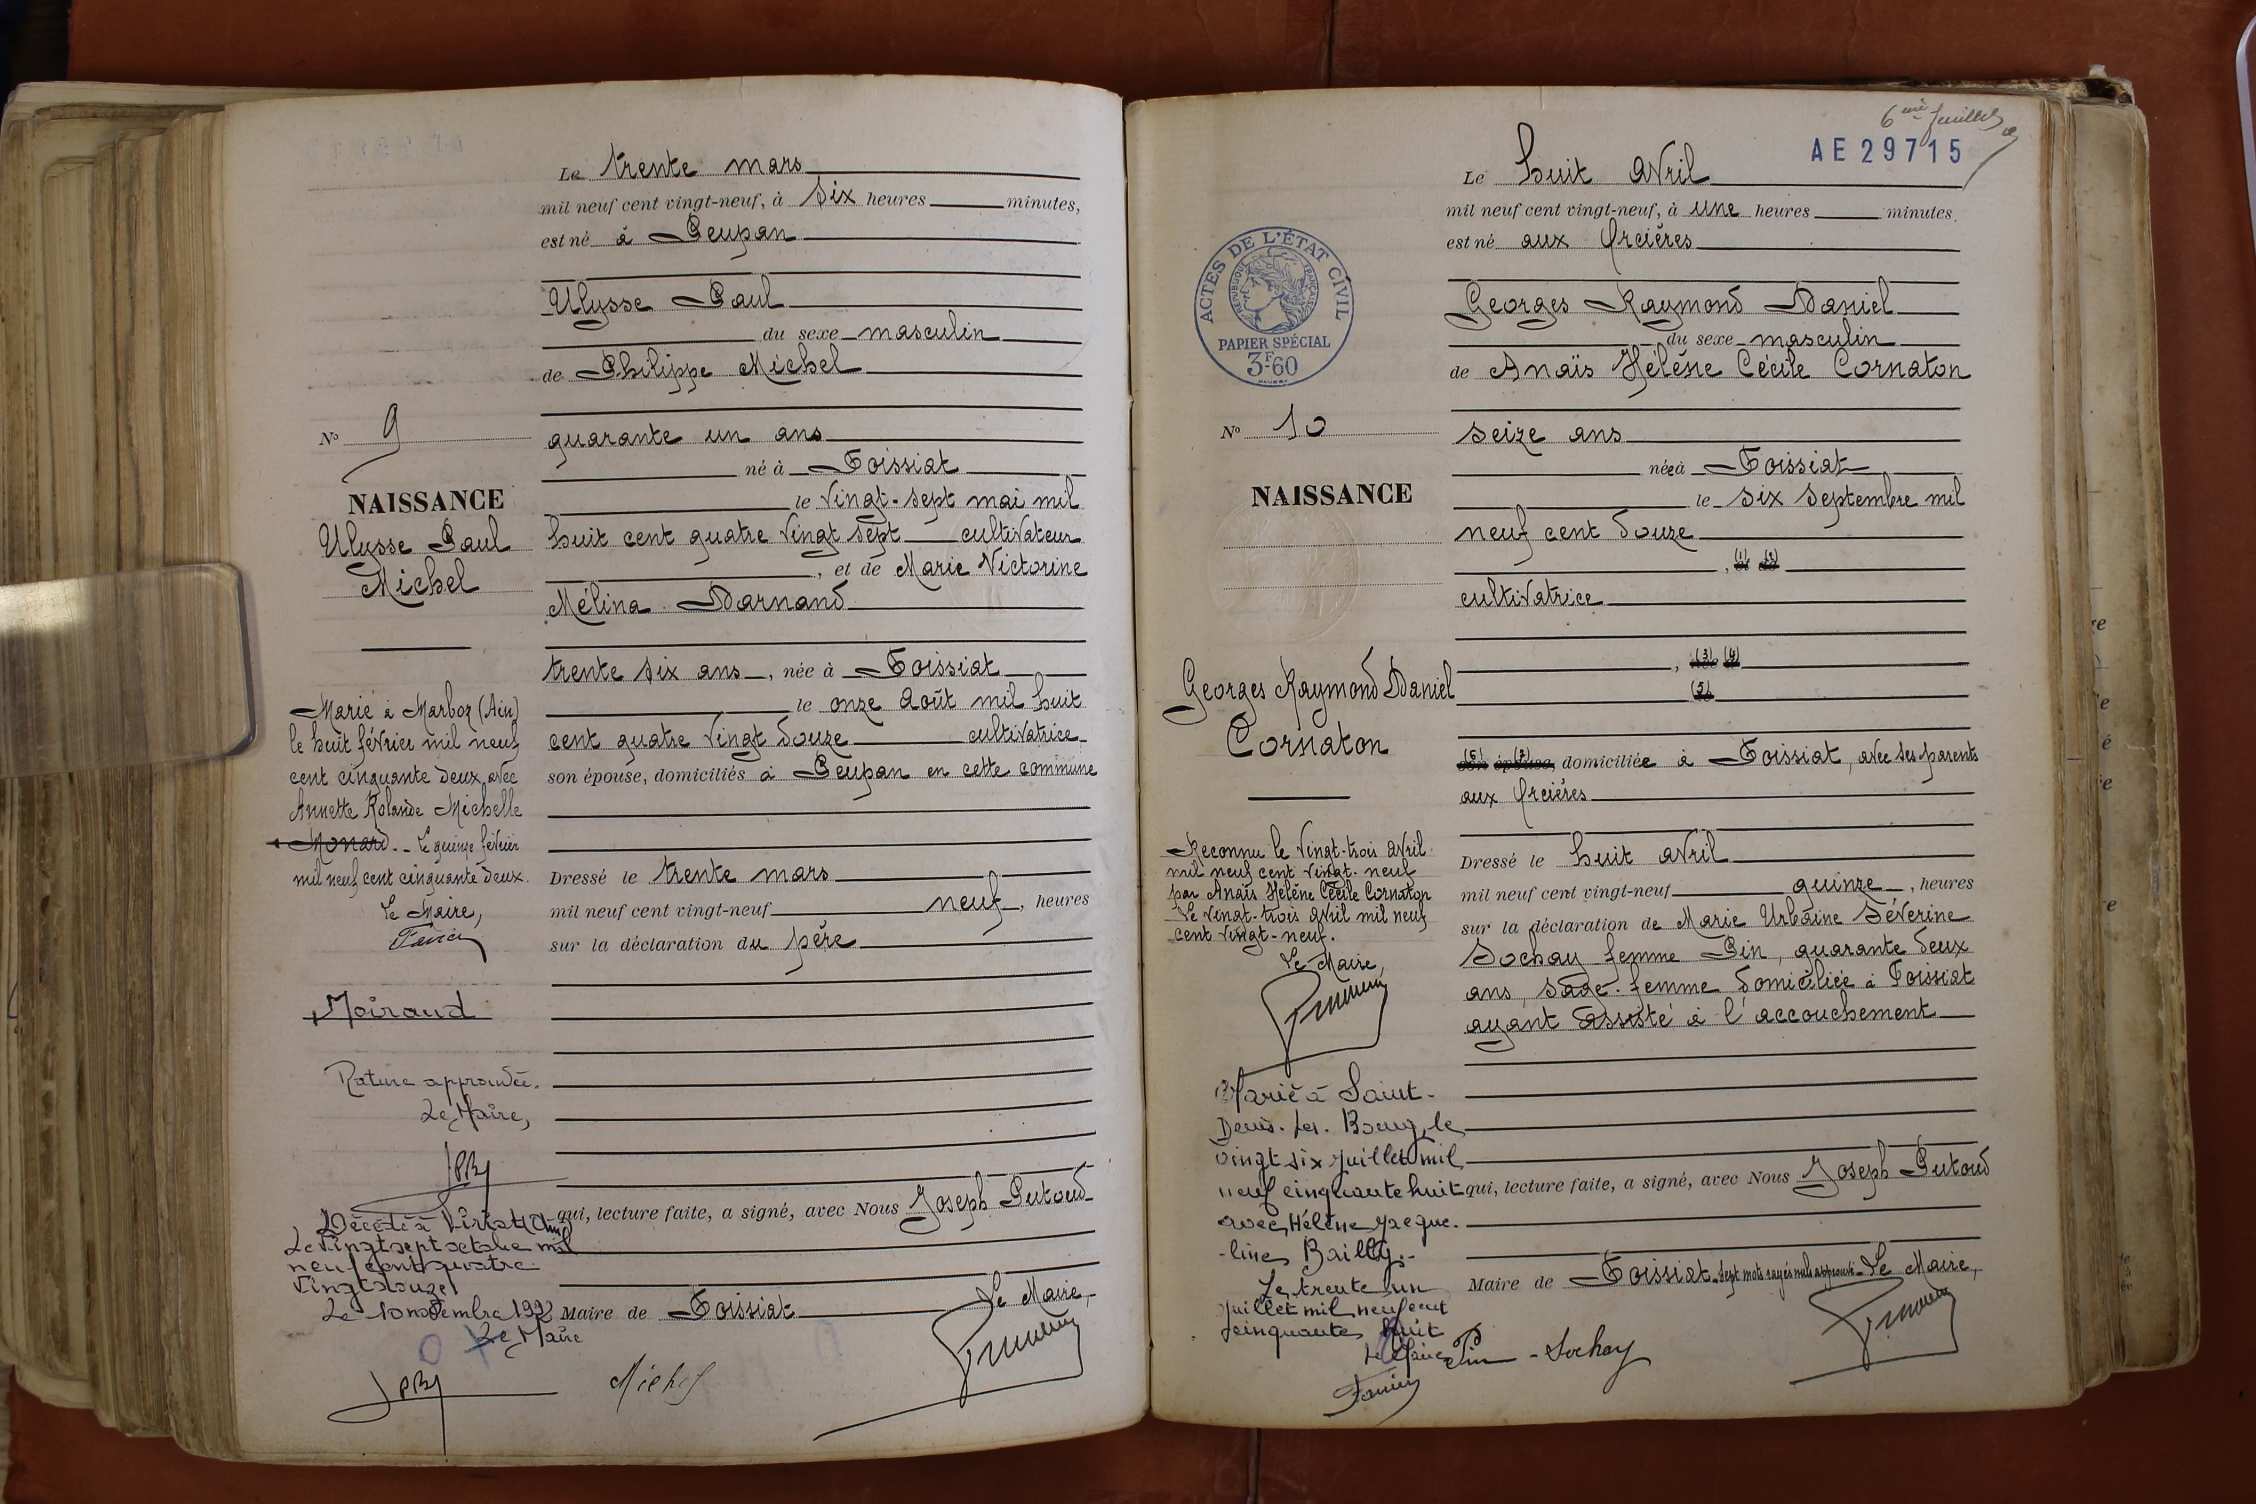 Le trente mars
mil neuf cent vingt-neuf, à six heures minutes,
est né à Peupan
Ulysse Paul
du sexe masculin
de Philippe Michel
quarante un ans
né à Foissiat
le vingt-sept mai mil
huit cent quatre vingt sept cultivateur
, et de Marie Victorine
Mélina Darnand
trente six ans, née à Foissiat
le onze août mil huit
cent quatre vingt douze cultivatrice
son épouse, domiciliés à Peupan en cette commune
Dressé le trente mars
mil neuf cent vingt-neuf neuf, heures
sur la déclaration du père
qui, lecture faite, a signé, avec Nous Joseph Putoud
Maire de Foissiat Le Maire,
Michel
No 9
NAISSANCE
Ulysse Paul
Michel
Marié à Marboz (Ain)
le huit février mil neuf
cent cinquante deux avec
Annette Rolande Michelle
Monard. - Le quinze février
mil neuf cent cinquante deux.
Le Maire,
+ Moiraud
Rature approuvée.
Le Maire,
Décédé à Viriat (Ain)
Le vingt sept octobre mil
neuf cent quatre
vingt douze
Le 10 novembre 1992
Le Maire
6ème feuillet
AE 29715
Le huit avril
mil neuf cent vingt-neuf, à une heures minutes,
est né aux Orcières
Georges Raymond Daniel
du sexe masculin
de Anaïs Hélène Cécile Cornaton
seize ans
née à Foissiat
le six septembre mil
neuf cent douze
, (1) (2)
cultivatrice
, (3) (4)
(5)
(6) (7) domiciliée à Foissiat, avec ses parents
aux Orcières
Dressé le huit avril
mil neuf cent vingt-neuf quinze, heures
sur la déclaration de Marie Urbaine Séverine
Sochay femme Pin, quarante deux
ans, sage-femme domiciliée à Foissiat
ayant assisté à l'accouchement
qui, lecture faite, a signé, avec Nous Joseph Putoud
Maire de Foissiat. Sept mots rayés nuls approuvé - Le Maire,
Pin - Sochay
ACTES DE L'ÉTAT CIVIL
RÉPUBLIQUE FRANÇAISE
PAPIER SPÉCIAL
3F60
No 10
NAISSANCE
Georges Raymond Daniel
Cornaton
Reconnu le vingt-trois avril
mil neuf cent vingt-neuf
par Anaïs Hélène Cécile Cornaton
Le vingt-trois avril mil neuf
cent vingt-neuf.
Le Maire,
Marié à Saint-
Denis-les-Bourg, le
vingt six juillet mil
neuf cinquante huit
avec Hélène Jacque-
line Bailly.-
Le trente un
juillet mil neuf cent
cinquante huit
Le Maire